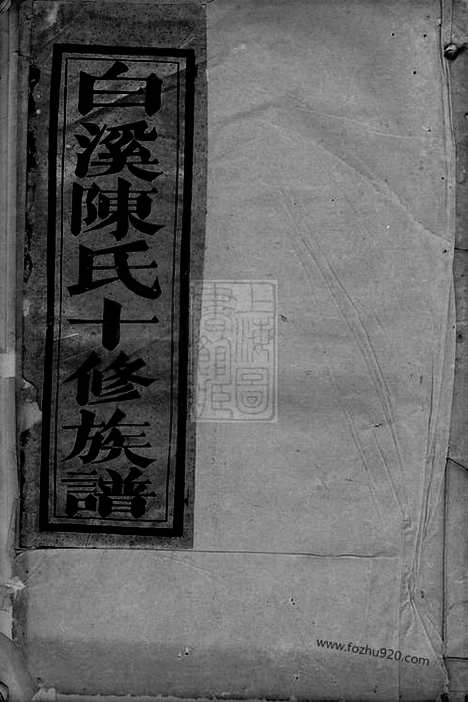 白溪陳氏十修族譜
上海圖
書館藏
www.fozhu920.com